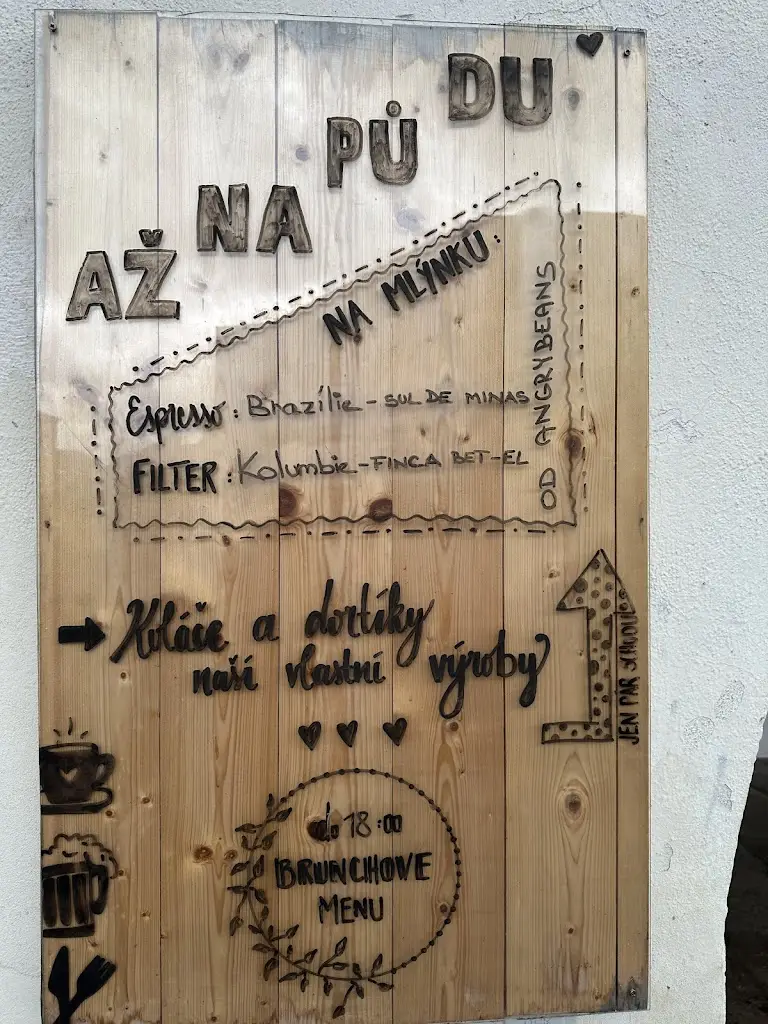 AŽ
NA
PŮ
DU
NA MLÝNKU:
Espresso: Brazílie - SUL DE MINAS
FILTER: Kolumbie - FINCA BET-EL
OD ANGRYBEANS
Koláče a dortíky
naší vlastní výroby
JEN PÁR SCHODŮ
do 18:00
BRUNCHOVE
MENU